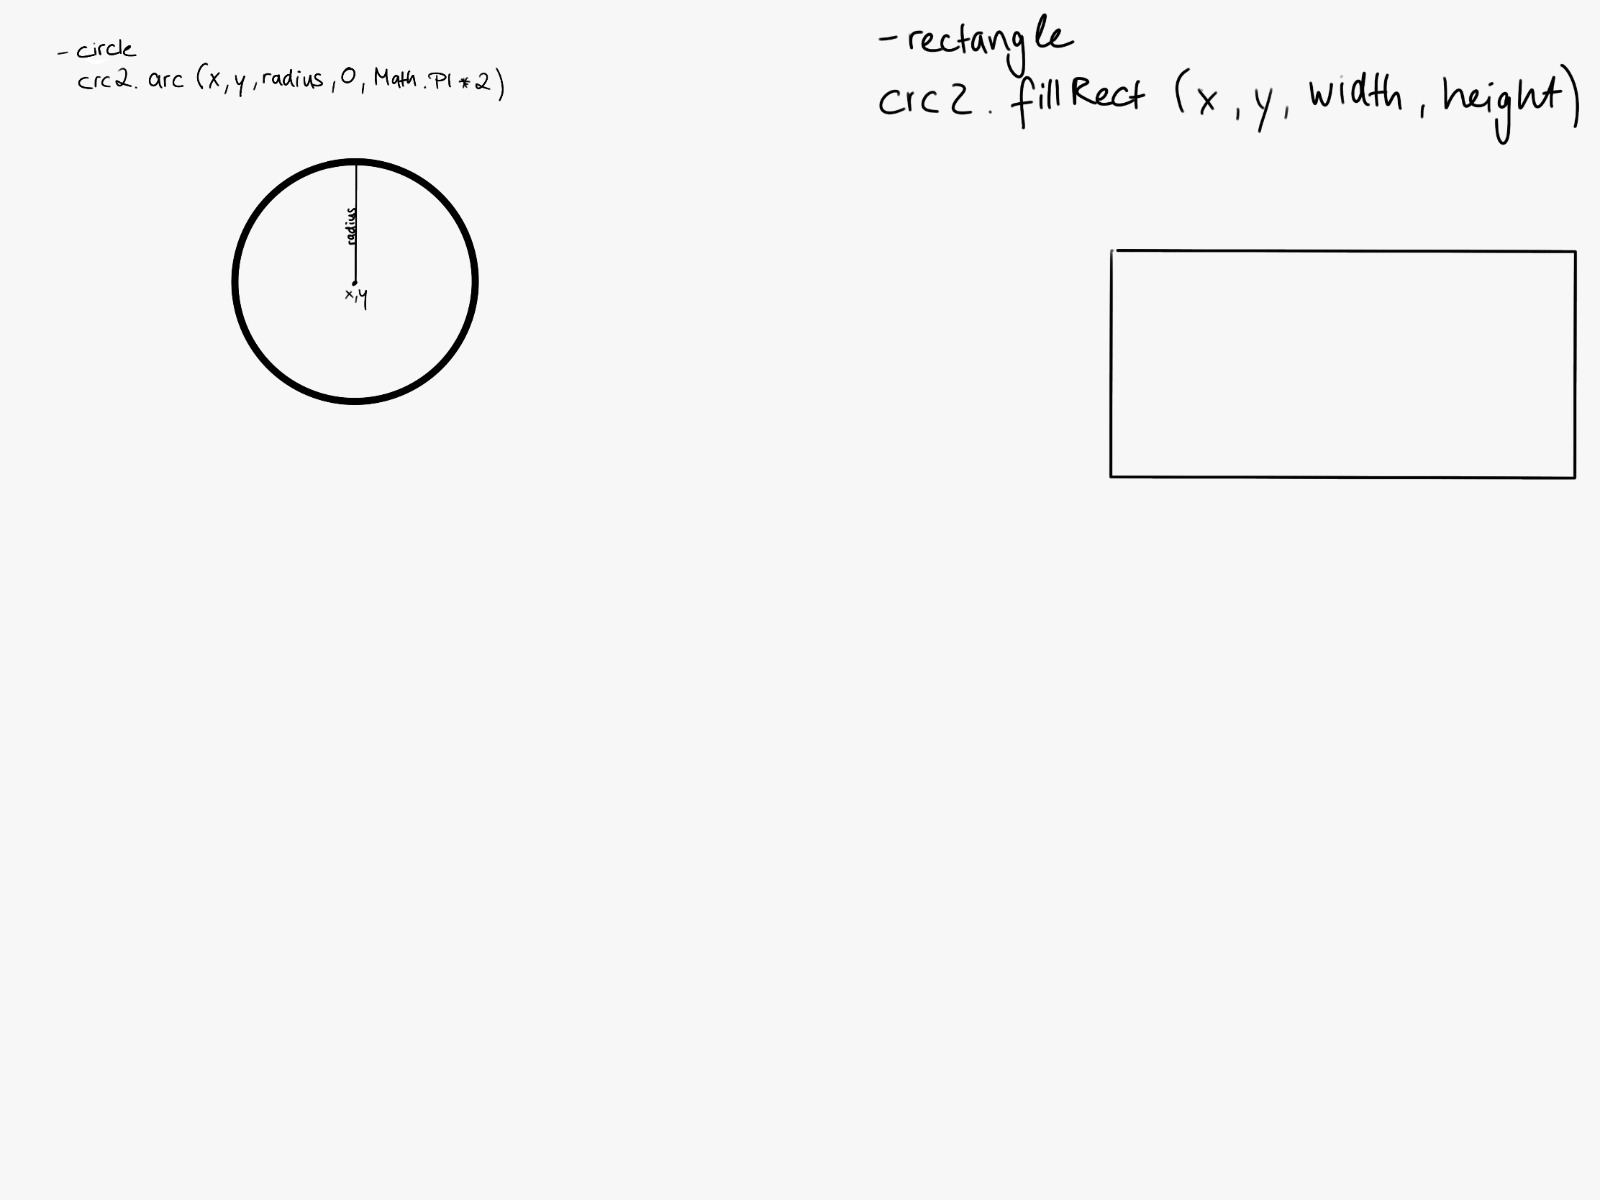 - circle
crc2. arc (x, y, radius, 0, Math. PI * 2)
radius
x,y
- rectangle
crc2. fillRect (x, y, width, height)